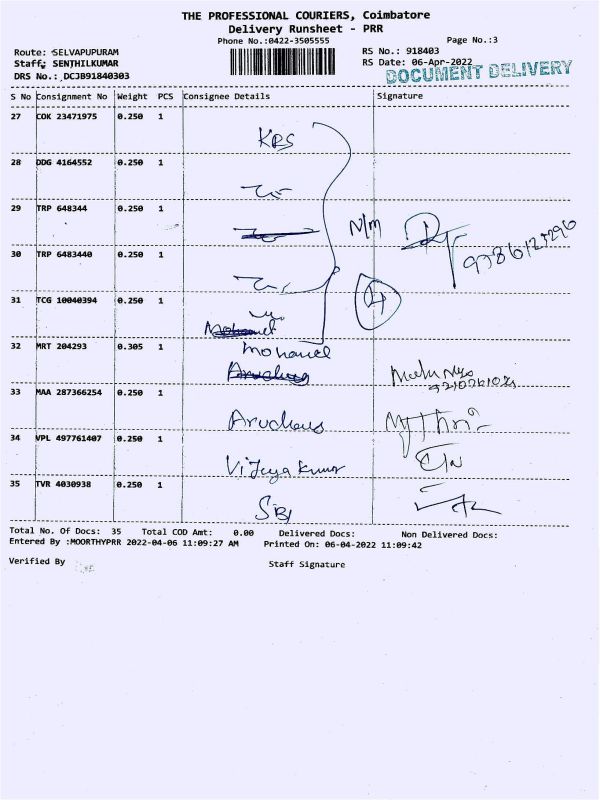 THE PROFESSIONAL COURIERS, Coimbatore
Delivery Runsheet - PRR
Phone No.:0422-3505555
Page No.:3
Route: SELVAPUPURAM
RS No.: 918403
Staff: SENTHILKUMAR
RS Date: 06-Apr-2022
DRS No.: DCJB91840303
DOCUMENT DELIVERY
S No Consignment No Weight PCS Consignee Details Signature
27 COK 23471975 0.250 1
KRS
28 DDG 4164552 0.250 1
29 TRP 648344 0.250 1
N/m
30 TRP 6483440 0.250 1
4
31 TCG 10040394 0.250 1
32 MRT 204293 0.305 1
33 MAA 287366254 0.250 1
34 VPL 497761407 0.250 1
Vijaya Kumar
35 TVR 4030938 0.250 1
SBI
Total No. Of Docs: 35 Total COD Amt: 0.00 Delivered Docs: Non Delivered Docs:
Entered By :MOORTHYPRR 2022-04-06 11:09:27 AM Printed On: 06-04-2022 11:09:42
Verified By
Staff Signature